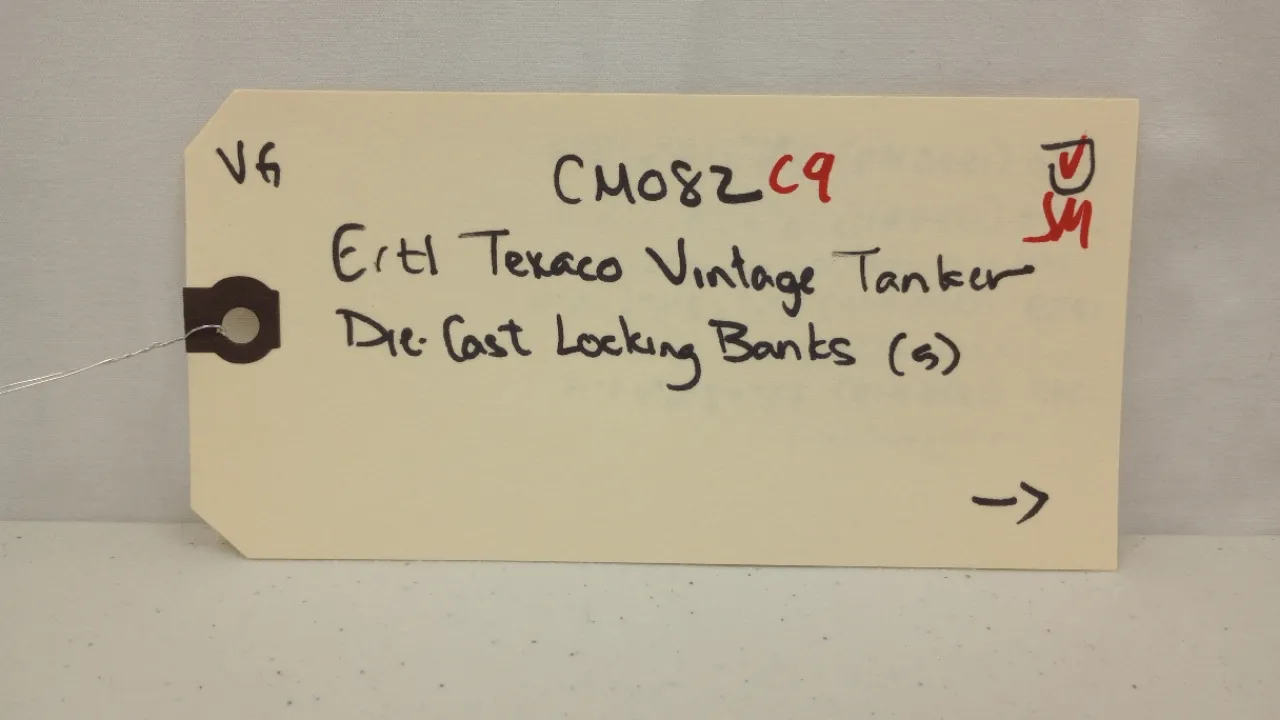 VG
CM082 C9
SM
Ertl Texaco Vintage Tanker
Die-Cast Locking Banks (5)